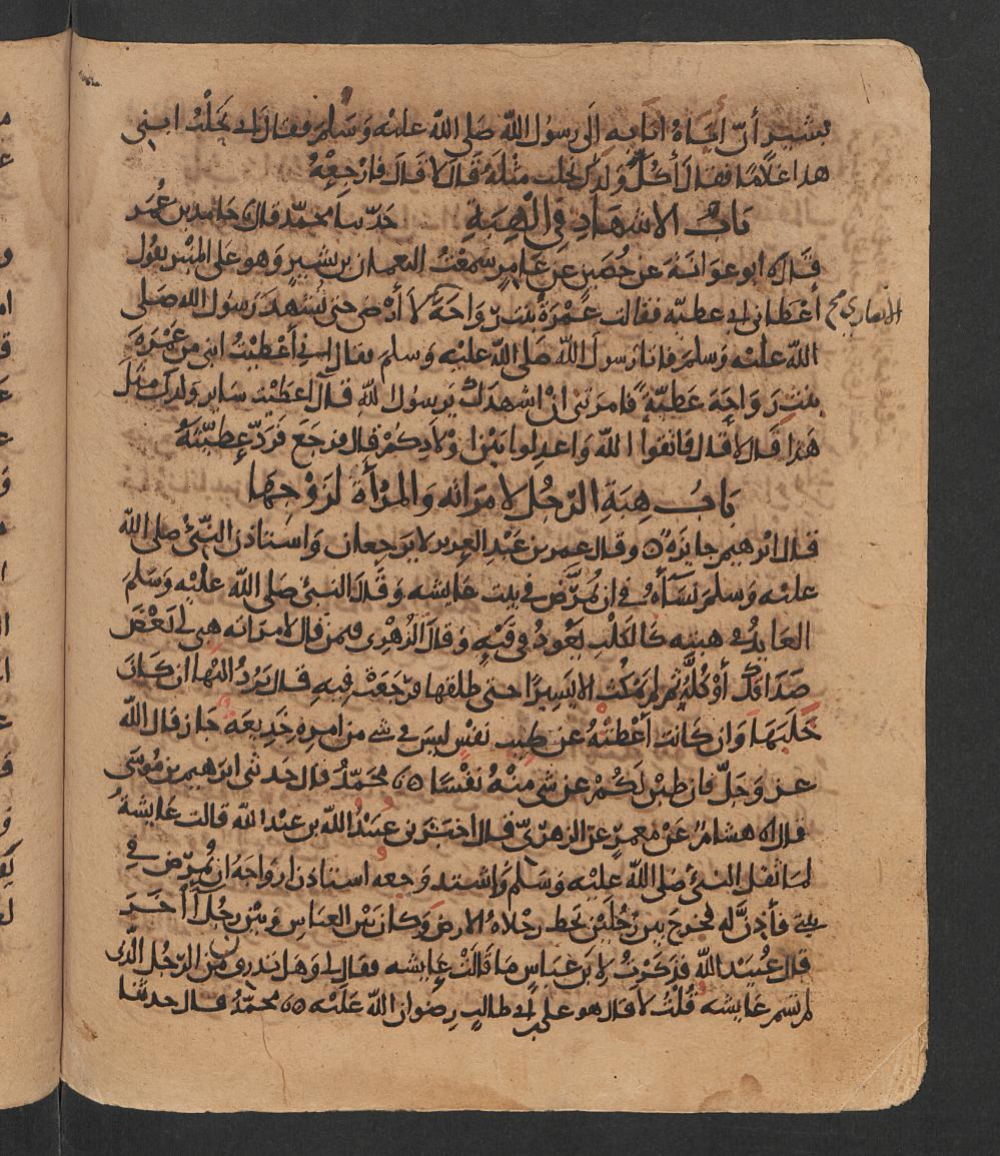 بشير أن أباه أتا به الى رسول الله صلى الله عليه وسلم فقال اني نحلت ابني
هذا غلاما فقال أكل ولدك نحلت مثله قال لا قال فارجعه
باب الاشهاد في الهبة حدثنا محمد قال حامد بن عمر
قال ابو عوانة عن حصين عن عامر سمعت النعمان بن بشير وهو على المنبر يقول
أعطاني ابي عطية فقالت عمرة بنت رواحة لا أرضى حتى تشهد رسول الله صلى
الأنصاري صح
الله عليه وسلم فاتا رسول الله صلى الله عليه وسلم فقال اني أعطيت ابني من عمرة
بنت رواحة عطية فامرتني ان اشهدك يرسول الله قال أعطيت ساير ولدك مثل
هذا قال لا قال فاتقوا الله واعدلوا بين اولادكم قال فرجع فرد عطيته
باب هبة الرجل لامراته والمرأة لزوجها
قال ابرهيم جايزة ه وقال عمر بن عبد العزيز لا يرجعان واستاذن النبي صلى الله
عليه وسلم نساءه في ان يمرض في بيت عايشه وقال النبي صلى الله عليه وسلم
العايد في هبته كالكلب يعود في قيه وقال الزهري فيمن قال لامراته هبي لي بعض
صداقك أو كله ثم لم يمكث الا يسيرا حتى طلقها فرجعت فيه قال يرد اليها ان كان
خلبها وان كانت أعطته عن طيب نفس ليس في شي من امره خديعة جاز قال الله
عز وجل فان طبن لكم عن شي منه نفسا ه محمد قال حدثني ابرهيم بن موسى
قال هشام عن معمر عن الزهري قال اخبرني عبيد الله بن عبد الله قالت عايشة
لما ثقل النبي صلى الله عليه وسلم واشتد وجعه استاذن ازواجه ان يمرض في
بيتي فأذن له فخرج بين رجلين تخط رجلاه الارض وكان بين العباس وبين رجل آخر
قال عبيد الله فذكرت لابن عباس ما قالت عايشه فقال لي وهل تدري من الرجل الذي
لم تسم عايشه قلت لا قال هو علي بن ابي طالب رضوان الله عليه ه محمد قال حدثنا